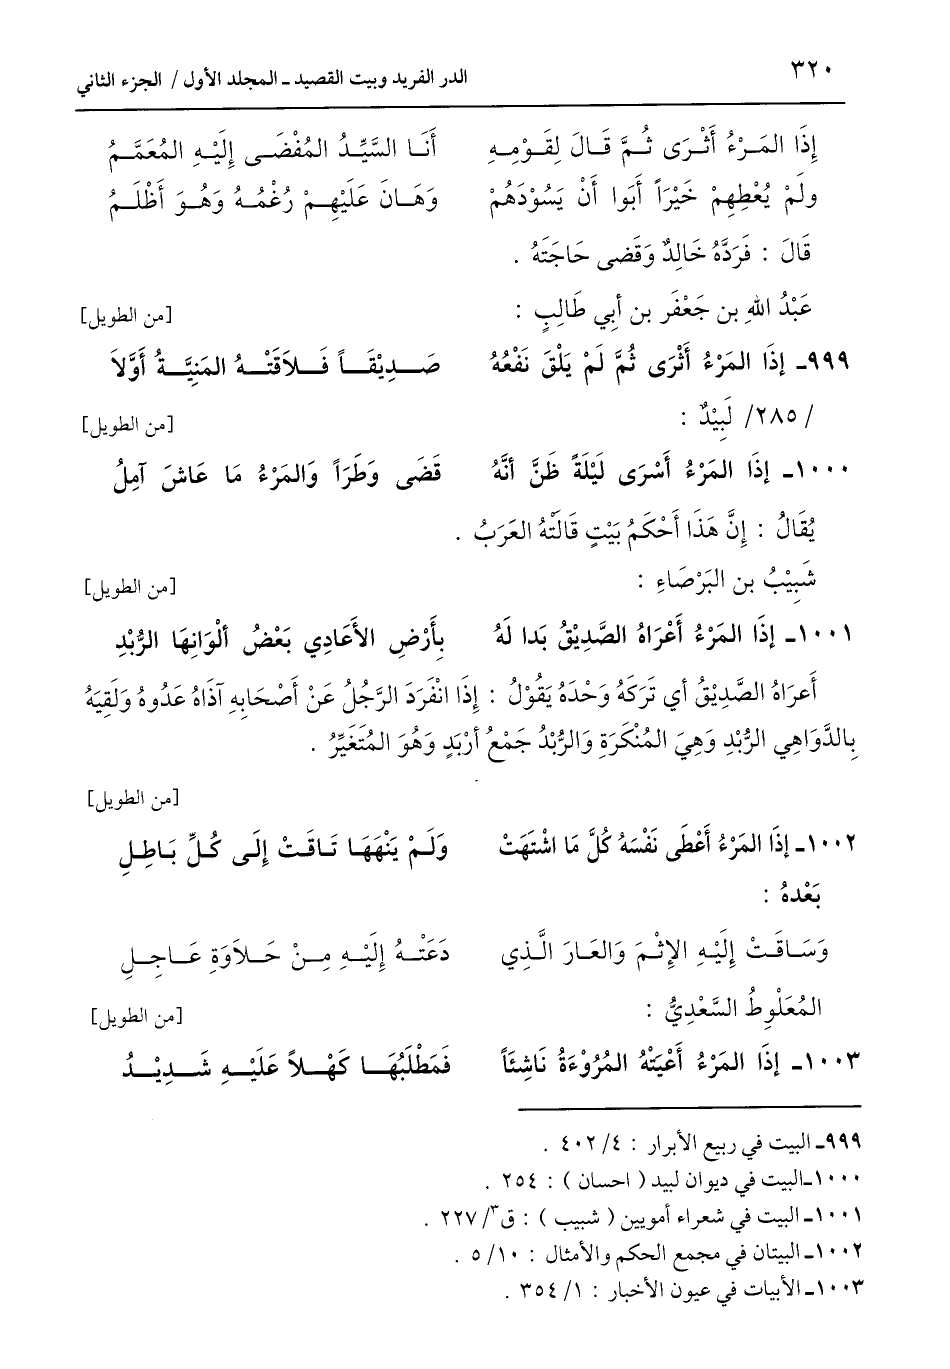 ٣٢٠ الدر الفريد وبيت القصيد ـ المجلد الأول / الجزء الثاني
إِذَا المَرْءُ أَثْرَى ثُمَّ قَالَ لِقَوْمِهِ أَنَا السَّيِّدُ المُفْضَى إِلَيْهِ المُعَمَّمُ
ولَمْ يُعْطِهِمْ خَيْرَاً أَبَوا أَنْ يَسُوْدَهُمْ وَهَانَ عَلَيْهِمْ رُغْمُهُ وَهُوَ أَظْلَمُ
قَالَ : فَرَدَّهُ خَالِدٌ وَقَضى حَاجَتَهُ .
عَبْدُ اللهِ بن جَعْفَر بن أبي طَالِبٍ : [من الطويل]
٩٩٩ـ إِذَا المَرْءُ أَثْرَى ثُمَّ لَمْ يَلْقَ نَفْعُهُ صَدِيْقَاً فَلاَقَتْهُ المَنِيَّةُ أَوَّلاَ
/ ٢٨٥/ لَبِيْدٌ : [من الطويل]
١٠٠٠ـ إِذَا المَرْءُ أَسْرَى لَيْلَةً ظَنَّ أَنَّهُ قَضَى وَطَرَاً وَالمَرْءُ مَا عَاشَ آمِلُ
يُقَالُ : إِنَّ هَذَا أَحْكَمُ بَيْتٍ قَالَتْهُ العَرَبُ .
شَبِيْبُ بن البَرْصَاءِ : [من الطويل]
١٠٠١ـ إِذَا المَرْءُ أَعْرَاهُ الصَّدِيْقُ بَدا لَهُ بِأَرْضِ الأَعَادِي بَعْضُ ألْوَانِهَا الرُّبْدِ
أَعرَاهُ الصَّدِيْقُ أي تَرَكَهُ وَحْدَهُ يَقُوْلُ : إِذَا انْفَرَدَ الرَّجُلُ عَنْ أَصْحَابِهِ آذَاهُ عَدُوهُ وَلَقِيَهُ
بِالدَّوَاهِي الرُّبْدِ وَهِيَ المُنْكَرَةِ وَالرُّبْدُ جَمْعُ أرْبَدٍ وَهُوَ المُتَغَيِّرُ .
[من الطويل]
١٠٠٢ـ إِذَا المَرْءُ أَعْطَى نَفْسَهُ كُلَّ مَا اشْتَهَتْ وَلَمْ يَنْهَهَا تَاقَتْ إِلَى كُلِّ بَاطِلِ
بَعْدهُ :
وَسَاقَتْ إِلَيْهِ الإِثْمَ وَالعَارَ الَّذِي دَعَتْهُ إِلَيْهِ مِنْ حَلاَوَةِ عَاجِلِ
المُعَلْوِطُ السَّعْدِيُّ : [من الطويل]
١٠٠٣ـ إِذَا المَرْءُ أَعْيَتْهُ المُرُوْءَةُ نَاشِئَاً فَمَطْلَبُهَا كَهْلاً عَلَيْهِ شَدِيْدُ
٩٩٩ـ البيت في ربيع الأبرار : ٤/ ٤٠٢ .
١٠٠٠ـالبيت في ديوان لبيد ( احسان ) : ٢٥٤ .
١٠٠١ـ البيت في شعراء أمويين ( شبيب ) : ق٣/ ٢٢٧ .
١٠٠٢ـ البيتان في مجمع الحكم والأمثال : ١٠/ ٥ .
١٠٠٣ـ الأبيات في عيون الأخبار : ١/ ٣٥٤ .